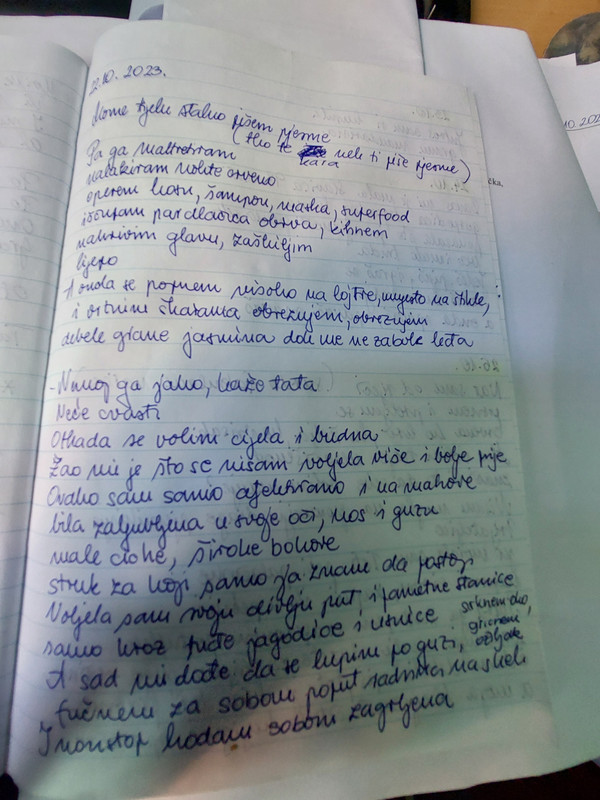 22.10.2023.
Mome tijelu stalno pišem pjesme
(tko te kara nek ti piše pjesme)
Pa ga maltretiram
nalakiram nokte crveno
operem kosu, šampon, maska, superfood
iščupam par dlačica obrva, kihnem
nakrivim glavu, zaškiljim
lijepo
A onda se popnem visoko na lojtre, umjesto na štikle,
i oštrim škarama obrezujem, obrezujem
debele grane jasmina dok me ne zabole leđa
- Nemoj ga jako, kaže tata
Neće cvasti
Otkada se volim cijela i budna
Žao mi je što se nisam voljela više i bolje prije
Ovako sam samo afektirano i na mahove
bila zaljubljena u svoje oči, nos i guzu
male cice, široke bokove
struk za koji samo ja znam da postoji
Voljela sam svoju divlju put, i pametne stanice
samo kroz tuđe jagodice i usnice
A sad mi dođe da se lupim po guzi, štipnem
fućnem za sobom poput radnika na skeli
I nonstop hodam sobom zagrljena